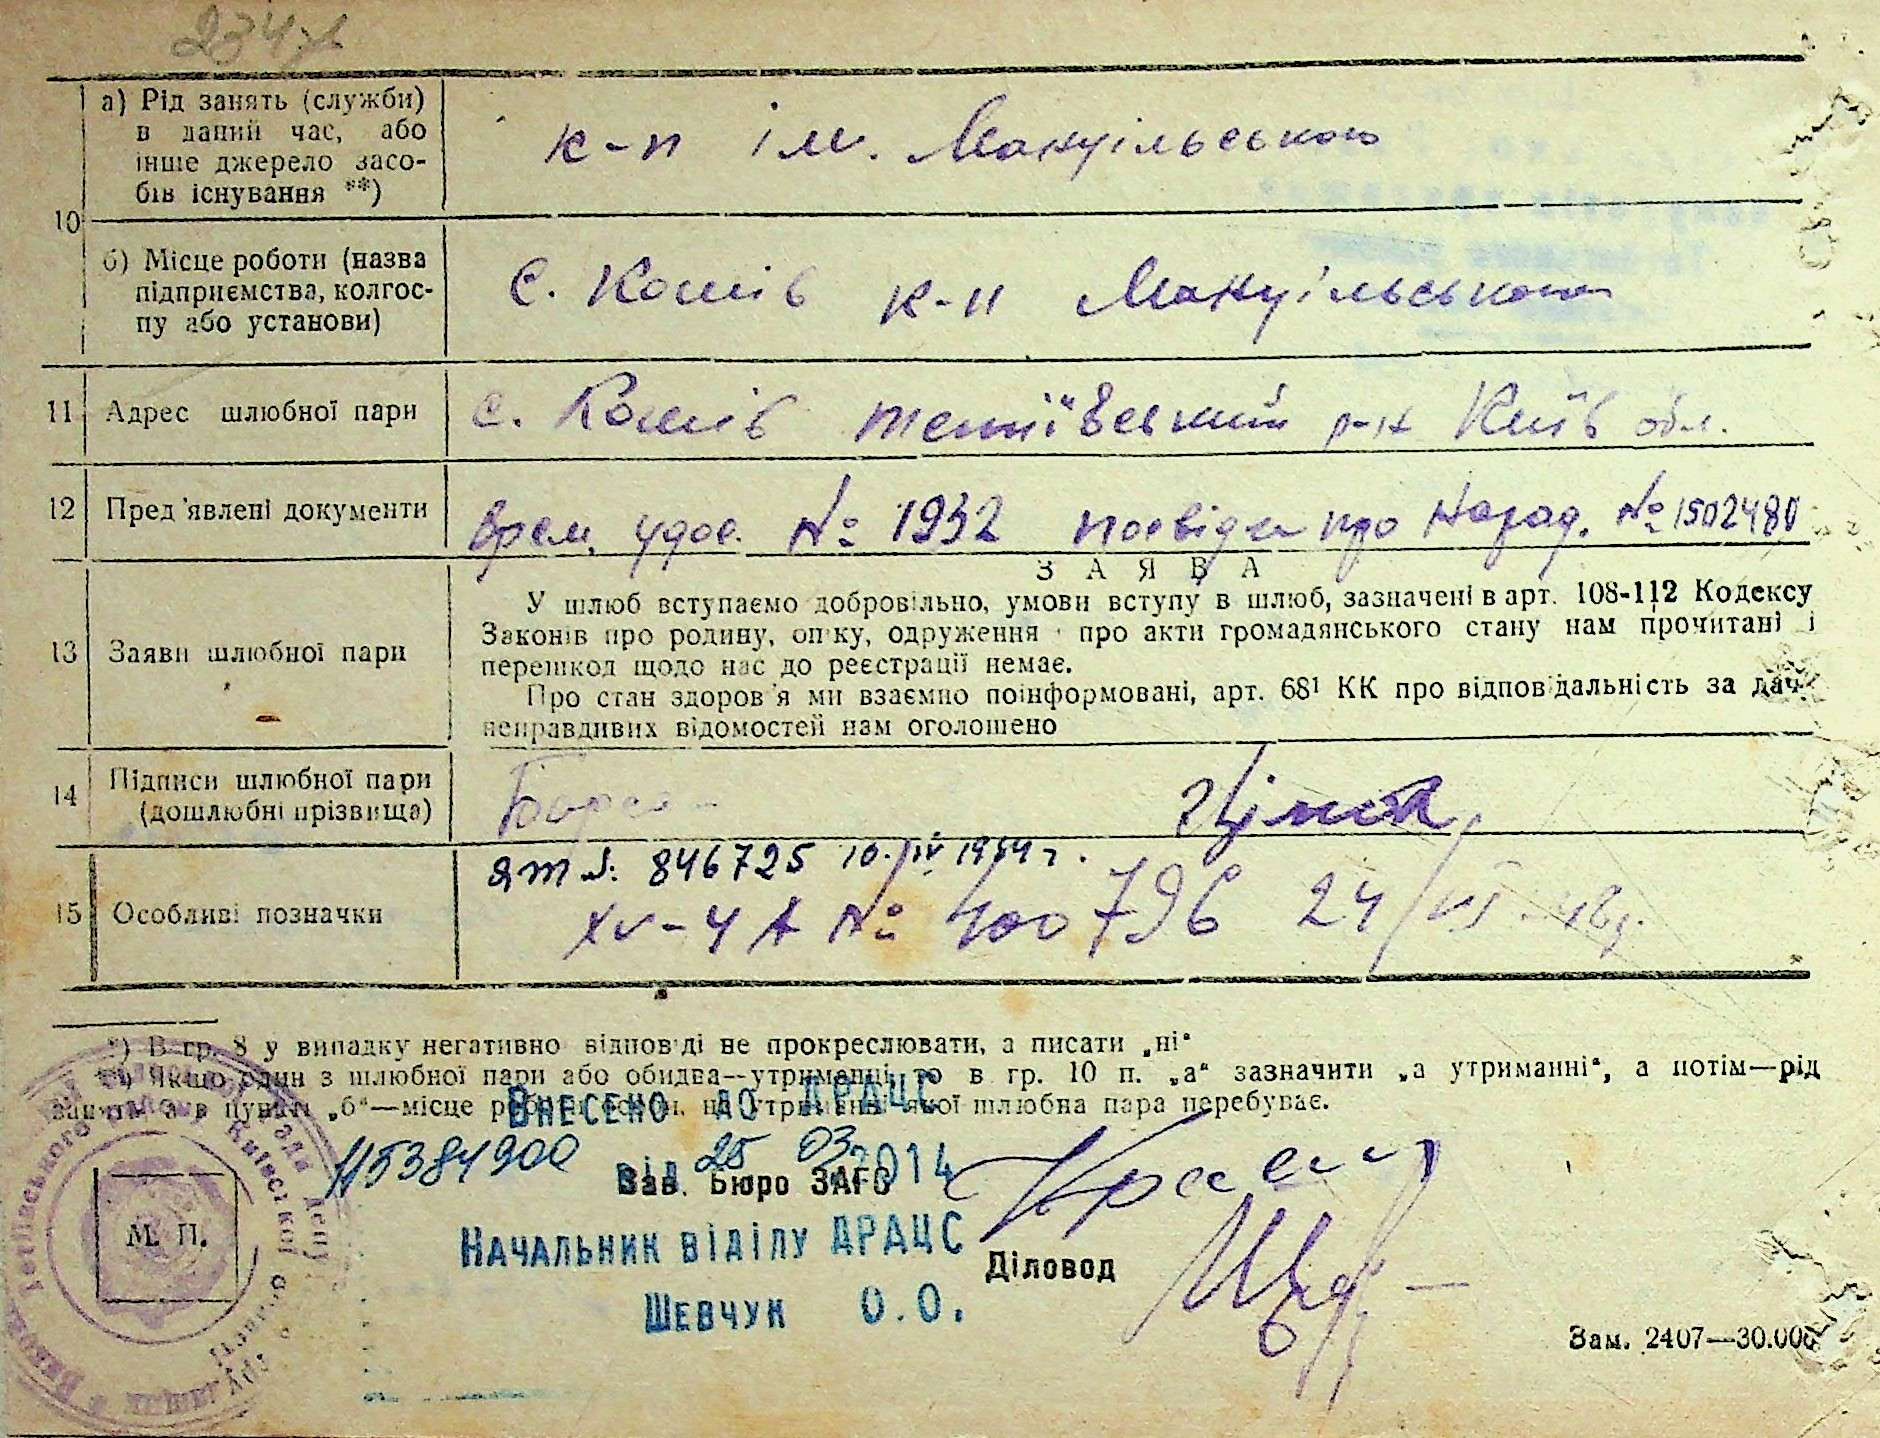 234
10 а) Рід занять (служби) в даний час, або інше джерело засобів існування **) к-п ім. Мануільського
б) Місце роботи (назва підприємства, колгоспу або установи) с. Кошів к-п Мануільського
11 Адрес шлюбної пари с. Кошів тетіївський р-н Київ обл.
12 Пред'явлені документи Врем. удос. № 1932 посвідка про Народ. № 1502480
З А Я В А
13 Заяви шлюбної пари
У шлюб вступаємо добровільно, умови вступу в шлюб, зазначені в арт. 108-112 Кодексу
Законів про родину, опіку, одруження і про акти громадянського стану нам прочитані і
перешкод щодо нас до реєстрації немає.
Про стан здоров'я ми взаємно поінформовані, арт. 68¹ КК про відповідальність за дач.
неправдивих відомостей нам оголошено
14 Підписи шлюбної пари (дошлюбні прізвища)
846725 10/IV 1954 г.
15 Особливі позначки XV-ЧА № 400796 24/VI
*) В гр. 8 у випадку негативно відповіді не прокреслювати, а писати „ні“
**) Якщо один з шлюбної пари або обидва—утриманці, то в гр. 10 п. „а“ зазначити „а утриманні“, а потім—рід
занять, а в пункті „б“—місце роботи особи, на утриманні якої шлюбна пара перебуває.
Внесено до ДРАЦС
115384900 від 25 03 2014
Зав. Бюро ЗАГС
Начальник відділу ДРАЦС
Діловод
Шевчук О.О.
М. П.
Зам. 2407—30.000